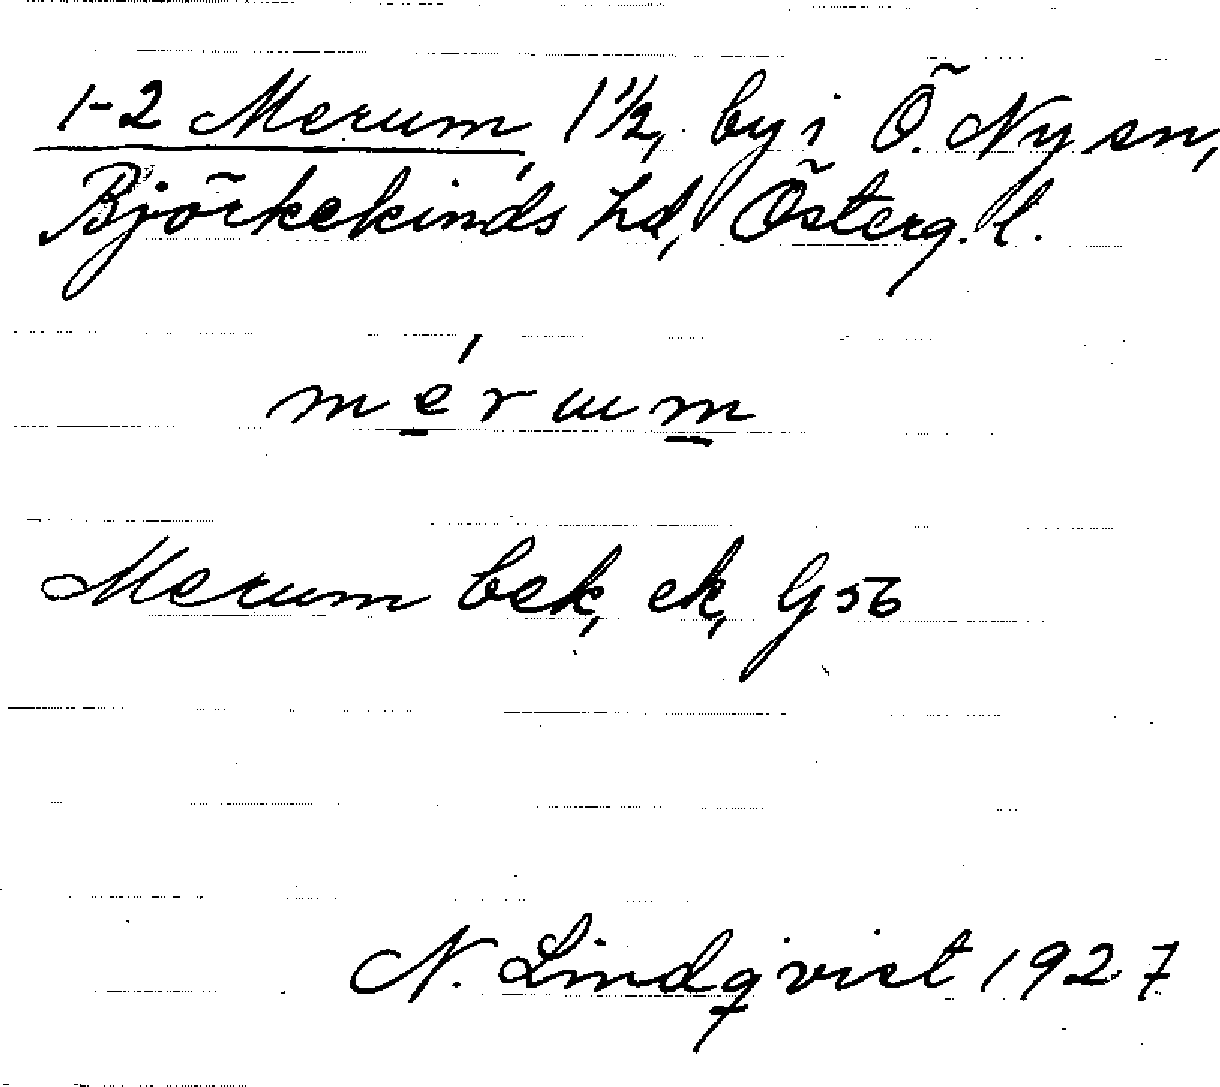 1-2 Merum, 1 1/2, by i Ö. Ny sn,
Björkekinds hd, Österg. l.
mérum
Merum bek, ek, G 56
N. Lindqvist 1927